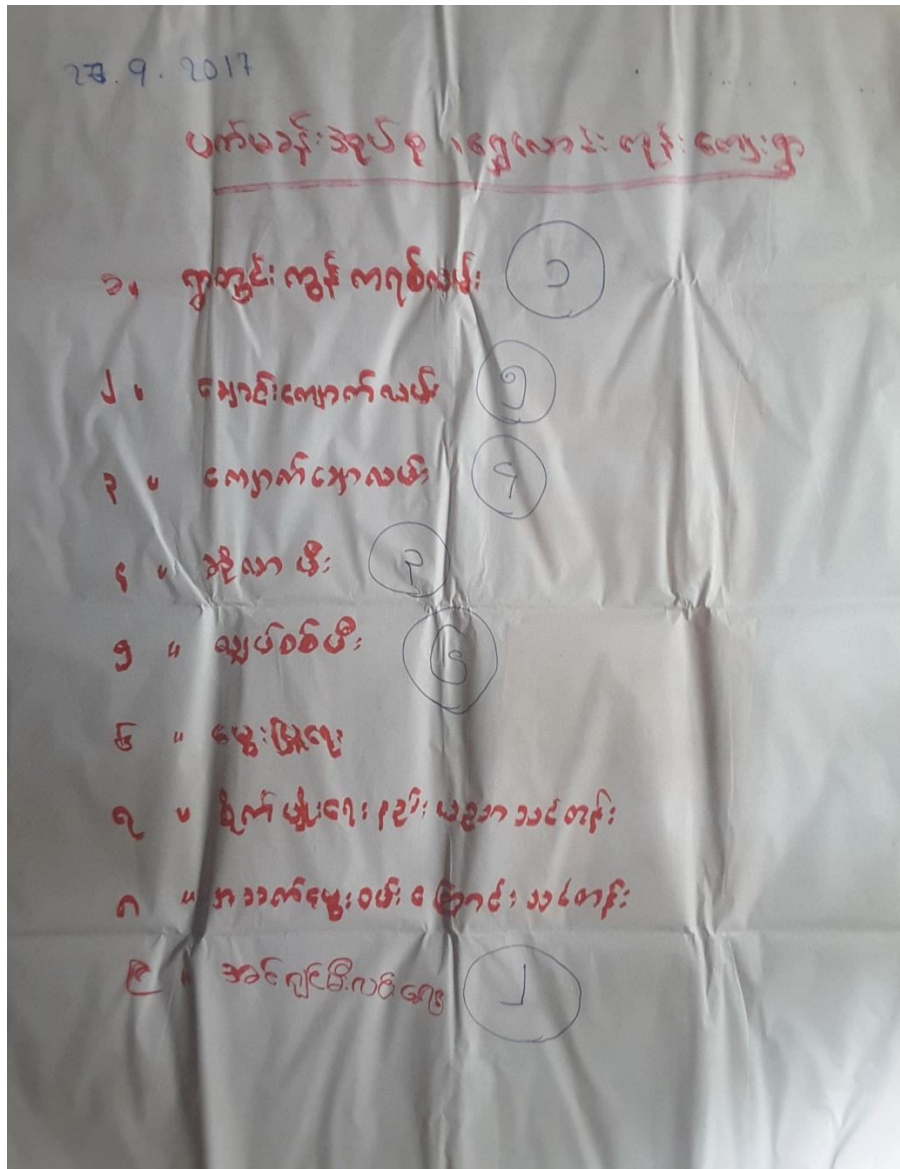 27.9.2017
ပက်မခန်းအုပ်စု ၊ ရွှေသောင်းကုန်းကျေးရွာ
၁။ ရွာတွင်းကွန်ကရစ်လမ်း ၁
၂။ မျောင်းကျောက်လမ်း ၅
၃။ ကျောက်ချောလမ်း ၄
၄။ ဆိုလာမီး ၃
၅။ လျှပ်စစ်မီး ၆
၆။ မွေးမြူရေး
၇။ စိုက်ပျိုးရေးနည်းပညာသင်တန်း
၈။ အသက်မွေးဝမ်းကြောင်းသင်တန်း
၉။ အင်ဂျင်မီးလင်းရေး ၂